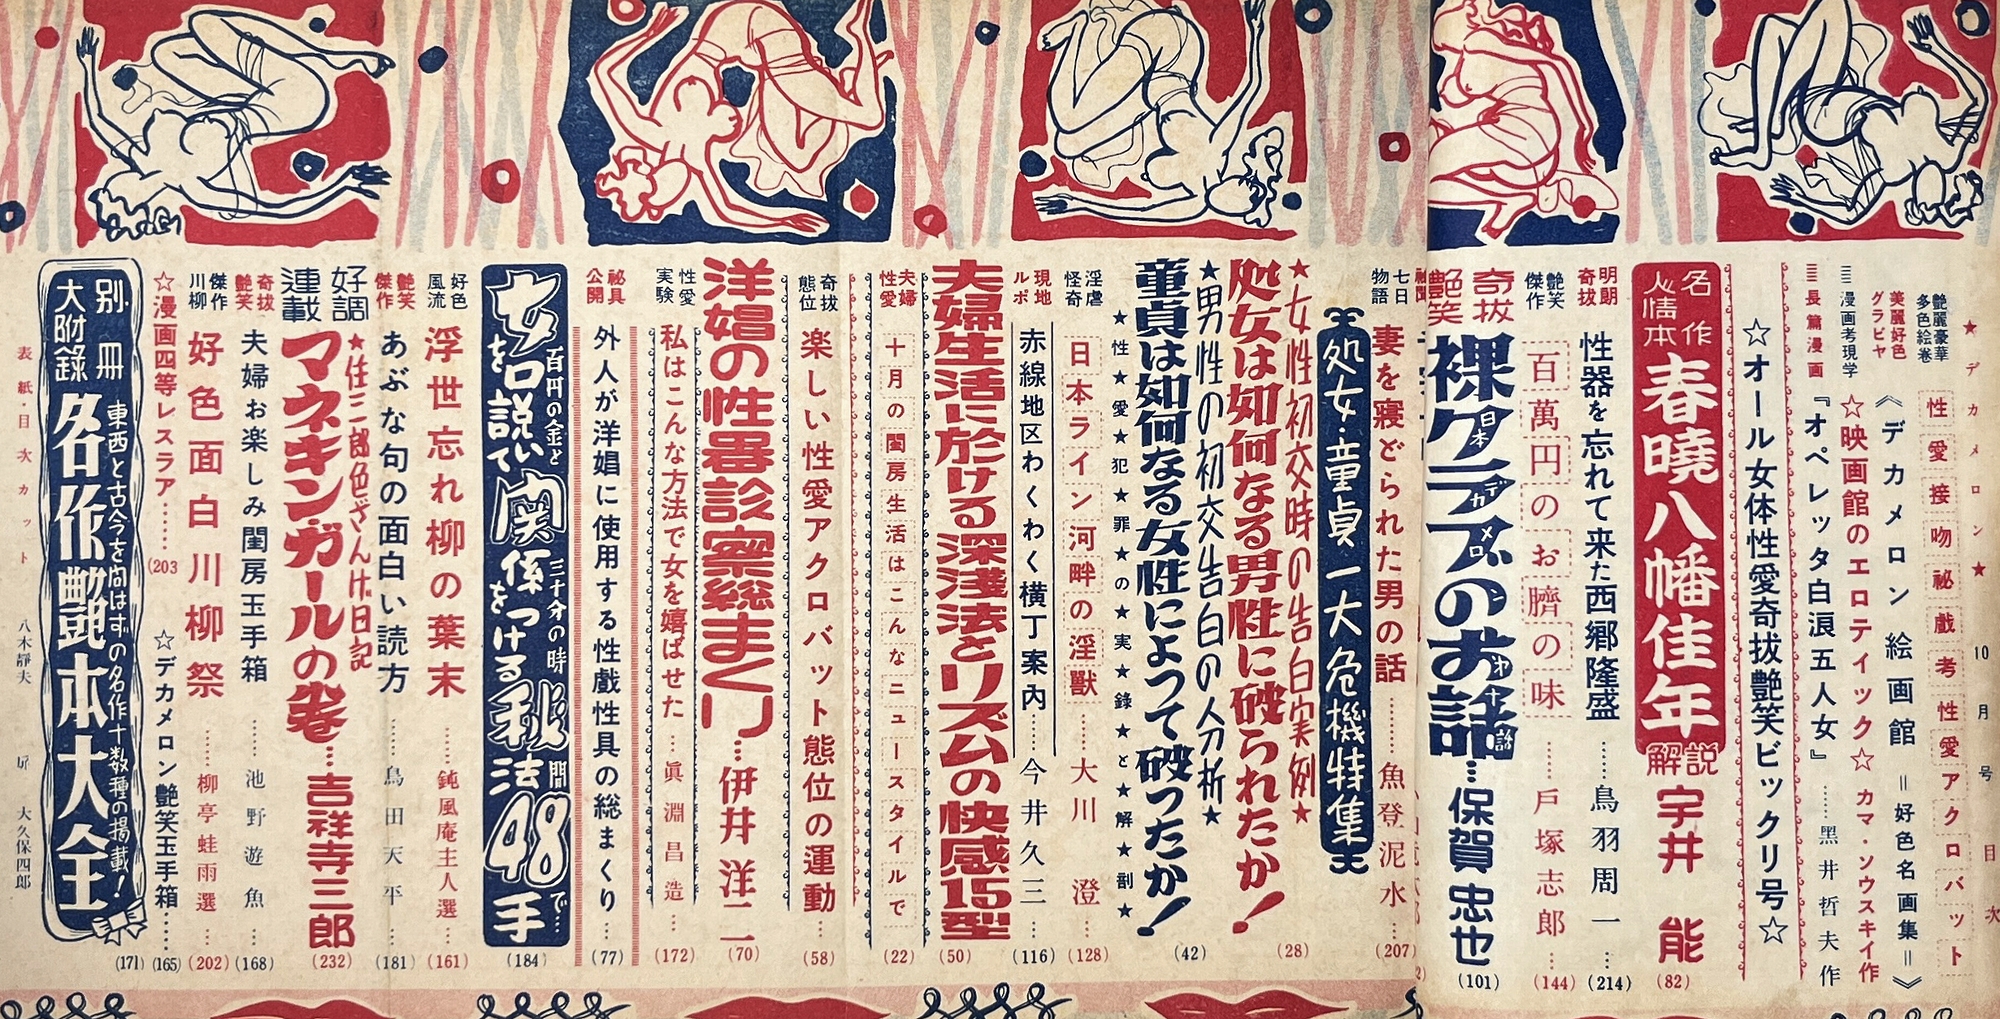 ★デカメロン★ 10月号 目次
艶麗豪華
多色絵巻
性愛接吻祕戯考性愛アクロバット
美麗好色
グラビヤ
《デカメロン 絵画館 =好色名画集=》
漫画考現学
☆映画館のエロテイック☆カマ・ソウスキイ作
長篇漫画
『オペレッタ白浪五人女』……黑井哲夫作
☆オール女体性愛奇抜艶笑ビックリ号☆
名作
人情本
春曉八幡佳年
解説
宇井 能
(82)
明朗
奇抜
性器を忘れて来た西郷隆盛……鳥羽周一…(214)
艶笑
傑作
百萬円のお臍の味……戸塚志郎…(144)
奇抜
艶笑
裸クラブのお話…保賀忠也
日本
デカメロン
(101)
七日
物語
妻を寝どられた男の話………魚登泥水
(207)
処女・童貞 一大危機特集
★女性初交時の告白実例★
処女は如何なる男性に破られたか!
(28)
★男性の初交告白の人分析★
童貞は如何なる女性によつて破つたか!
(42)
★性★愛★犯★罪★の★実★録★と★解★剖★
淫虐
怪奇
日本ライン河畔の淫獸……大川 澄…(128)
現地
ルポ
赤線地区わくわく横丁案内……今井久三…(116)
夫婦生活に於ける深淺法とリズムの快感15型
(50)
夫婦
性愛
十月の閨房生活はこんなニュースタイルで
(22)
奇抜
態位
楽しい性愛アクロバット態位の運動…(58)
洋娼の性器診察総まくり…伊井洋二
(70)
性愛
実験
私はこんな方法で女を嬉ばせた…眞淵昌造…(172)
祕具
公開
外人が洋娼に使用する性戯性具の総まくり…(77)
百円の金と三十分の時間で…
女を口説いて関係をつける秘法48手
(184)
好色
風流
浮世忘れ柳の葉末……鈍風庵主人選…(161)
艶笑
傑作
あぶな句の面白い読方……鳥田天平…(181)
好調
連載
★任三郎色ざんげ日記
マネキン・ガールの巻…吉祥寺三郎
(232)
奇抜
艶笑
夫婦お楽しみ閨房玉手箱……池野遊魚…(168)
傑作
川柳
好色面白川柳祭……柳亭蛙雨選…(202)
☆漫画四等レスラア……(203
☆デカメロン艶笑玉手箱……(165)
別冊
大附録
東西と古今を問はずの名作十数種の掲載!
名作艶本大全
(171)
表紙・目次カット 八木靜夫 扉 大久保四郎